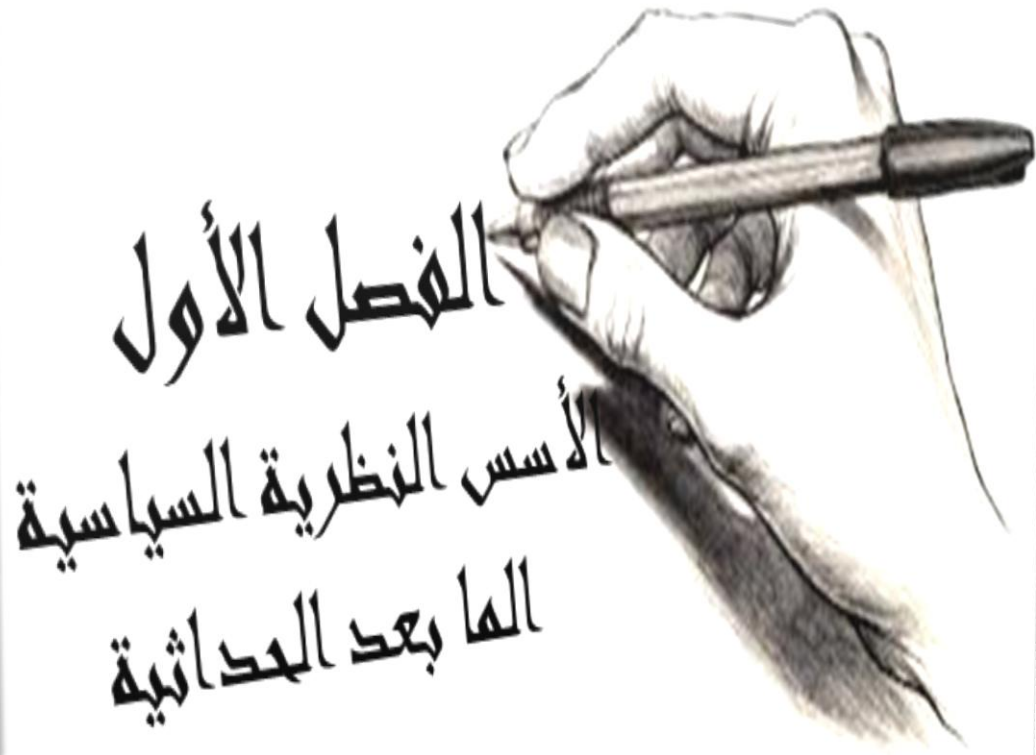 الفصل الأول
الأسس النظرية السياسية
الما بعد الحداثية